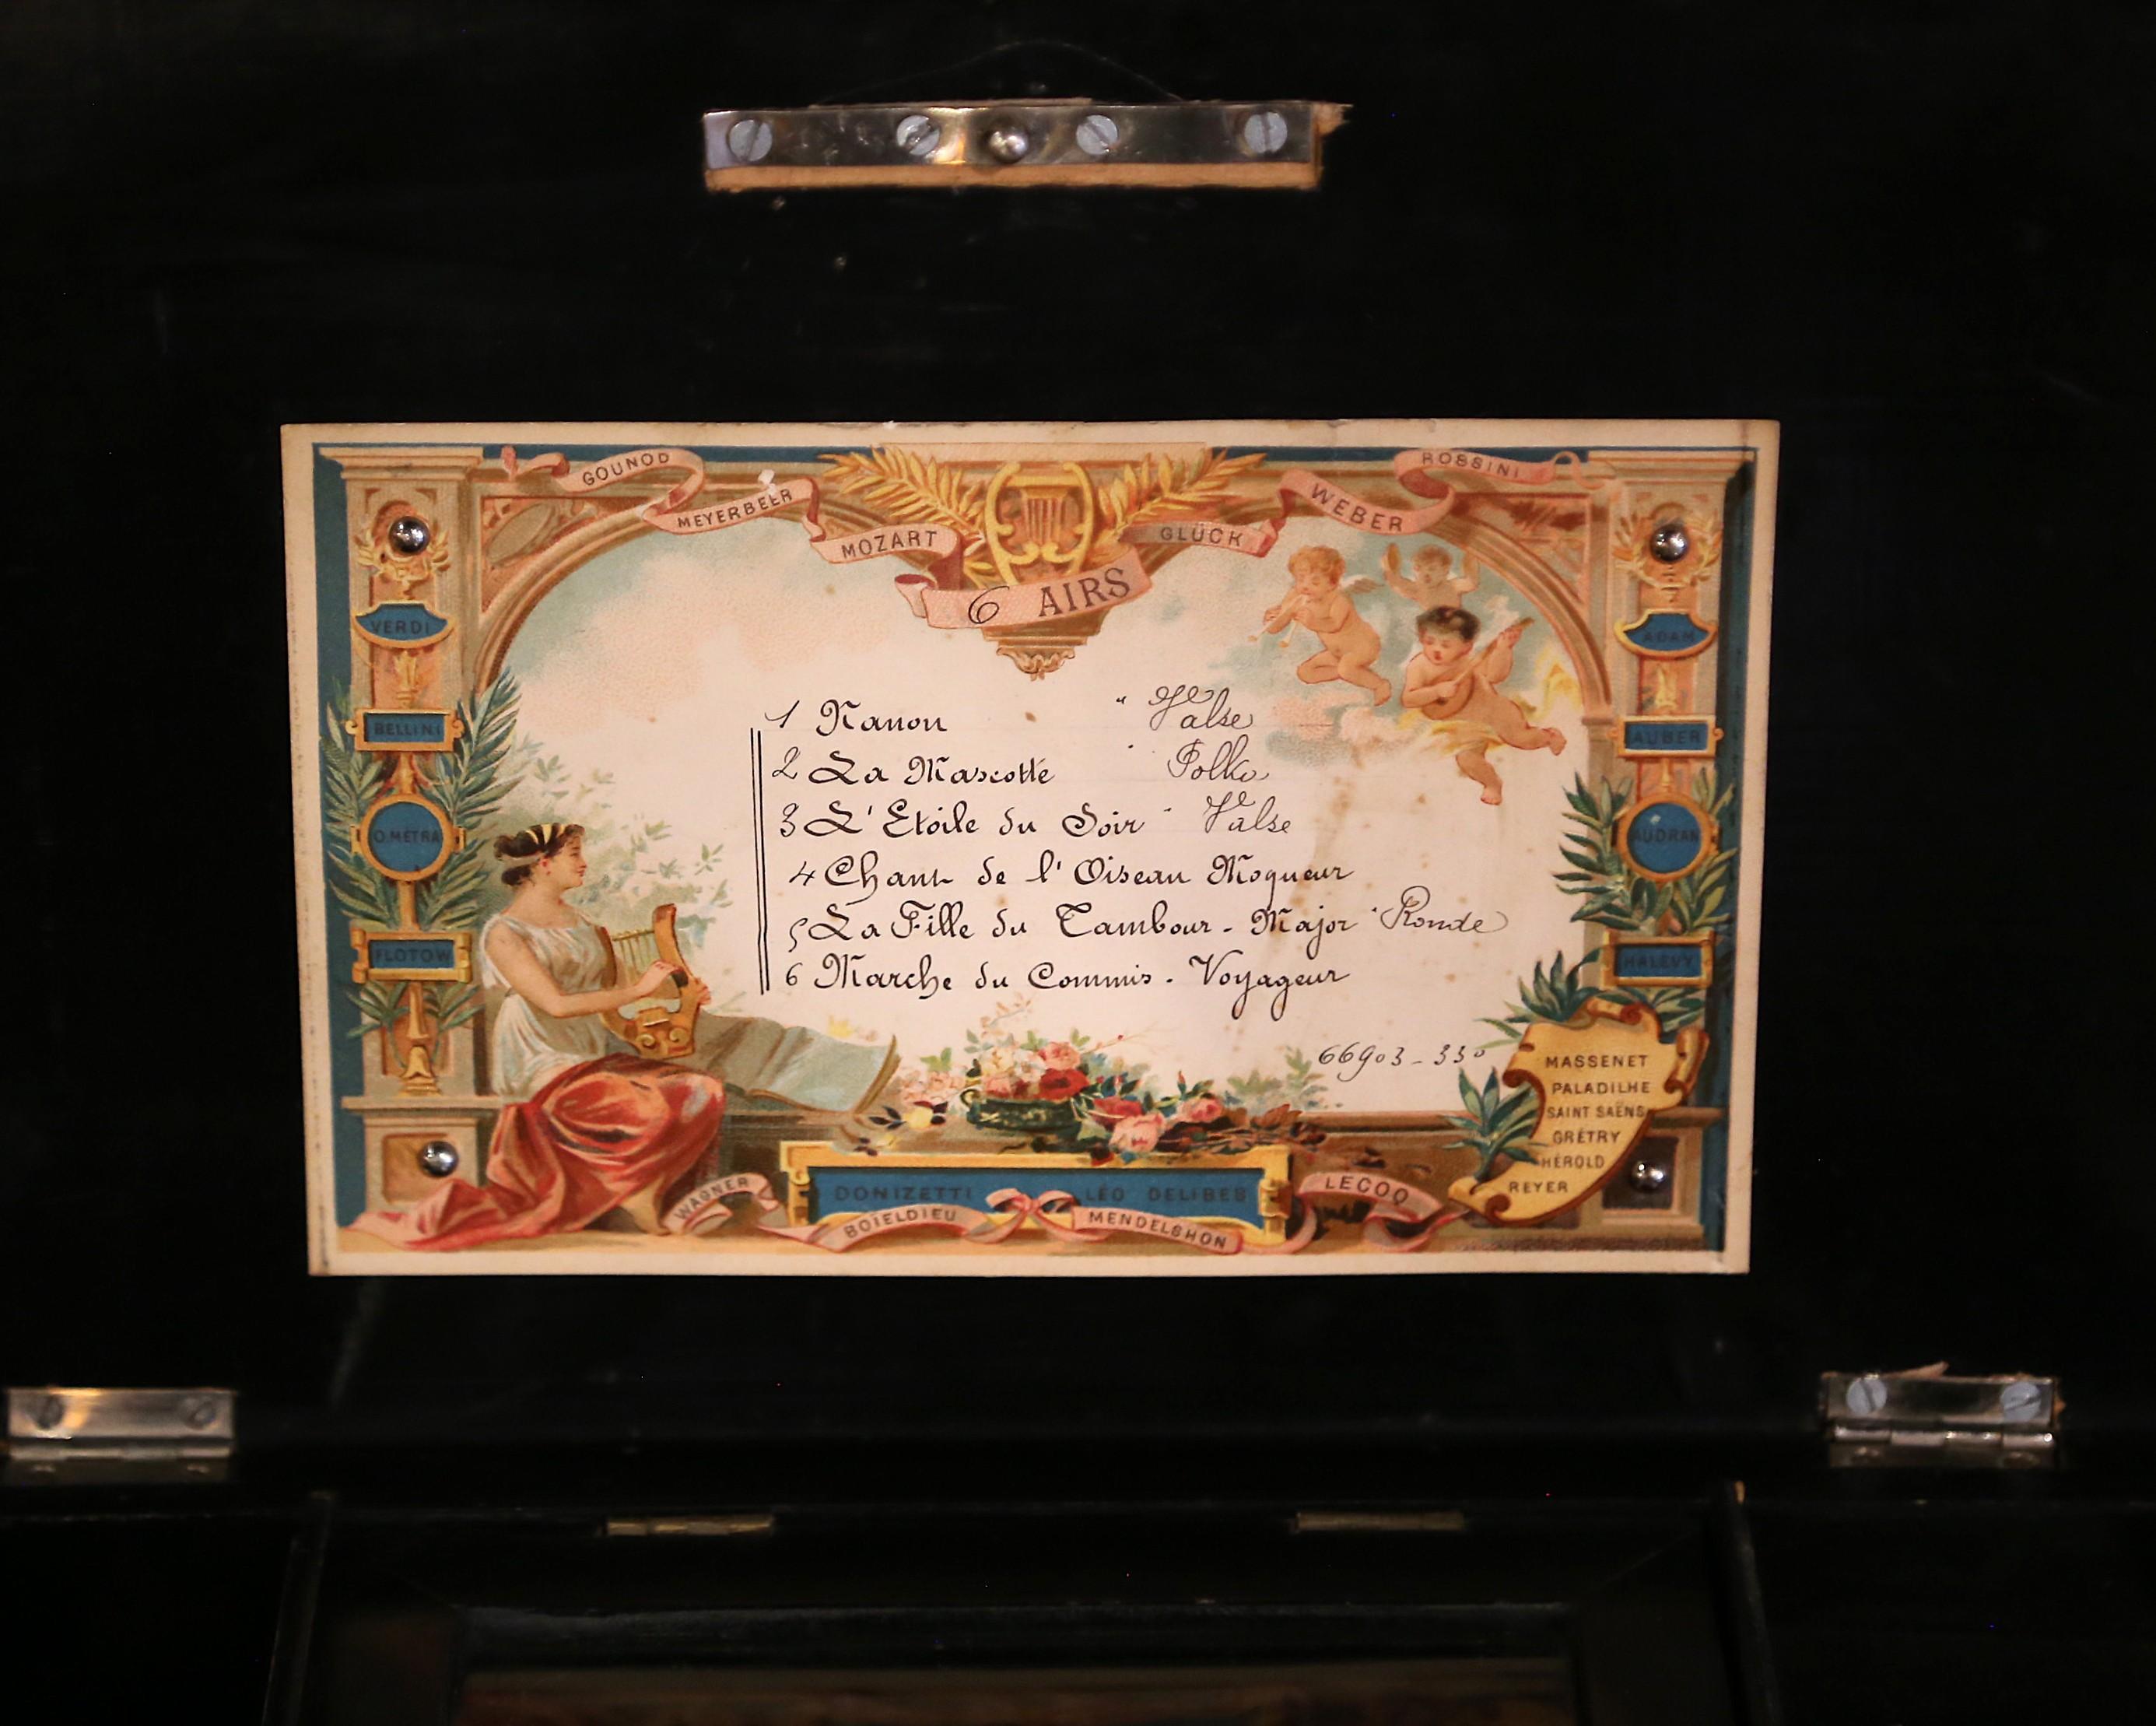 GOUNOD
MEYERBEER
MOZART
GLÜCK
WEBER
ROSSINI
6 AIRS
VERDI
BELLINI
O.METRA
FLOTOW
ADAM
AUBER
AUDRAN
HALÉVY
1 Nanon " Valse
2 La Mascotte " Polka
3 L'Etoile du Soir " Valse
4 Chant de l'Oiseau Moqueur
5 La Fille du Tambour - Major " Ronde
6 Marche du Commis - Voyageur
66903 - 330
MASSENET
PALADILHE
SAINT SAËNS
GRÉTRY
HÉROLD
REYER
WAGNER
DONIZETTI
LÉO DELIBES
BOIELDIEU
MENDELSHON
LECOQ